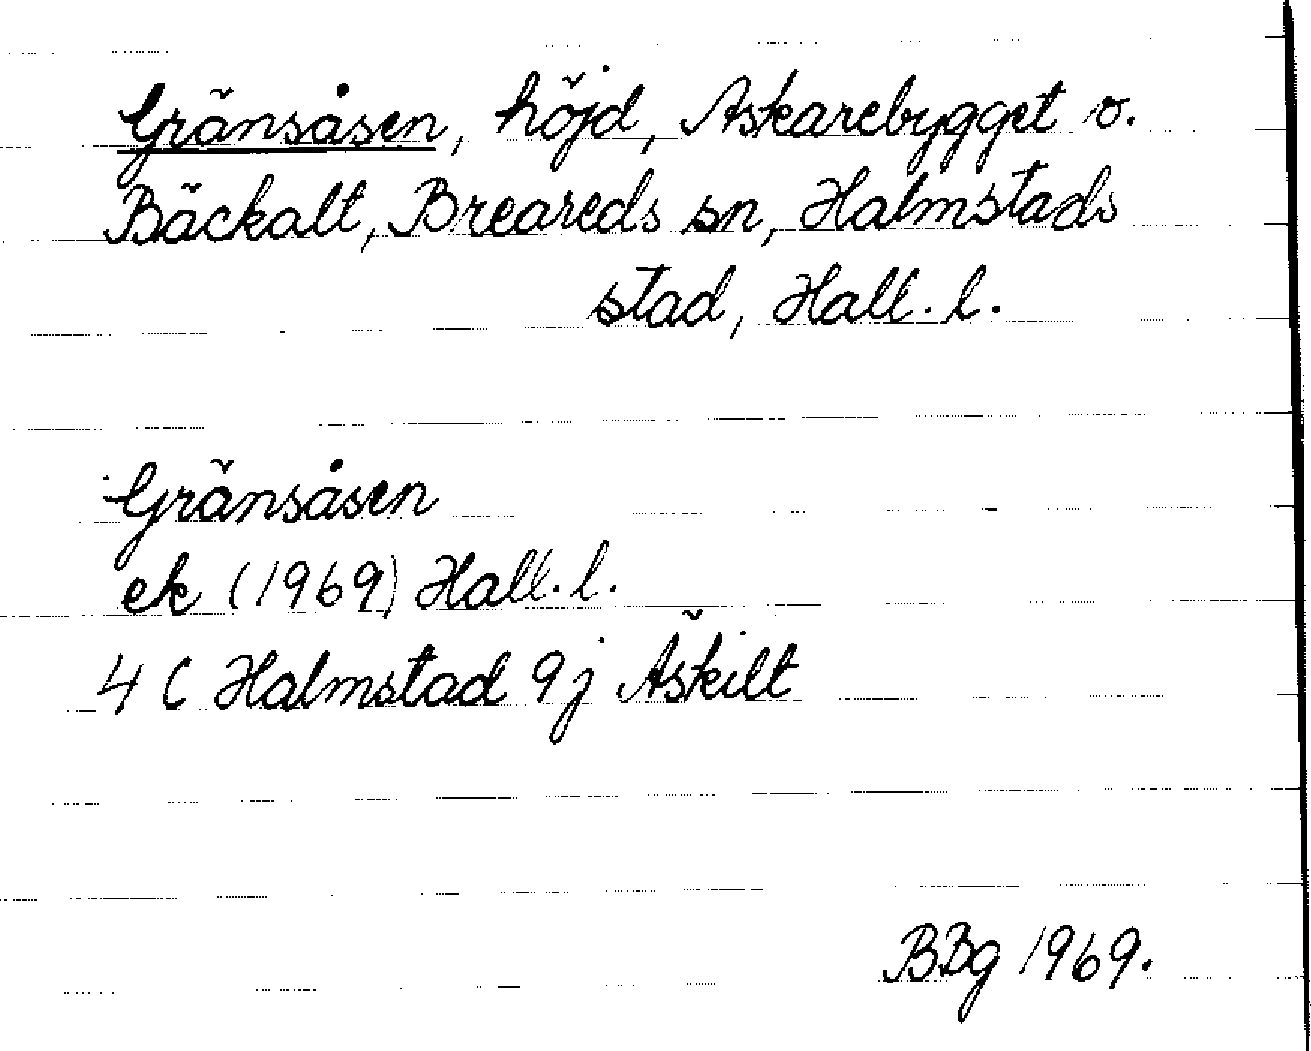 Gränsåsen, höjd, Askarebygget o.
Bäckalt, Breareds sn, Halmstads
stad, Hall. l.
Gränsåsen
ek (1969) Hall. l.
4 C Halmstad 9j Äskilt
BBg 1969.